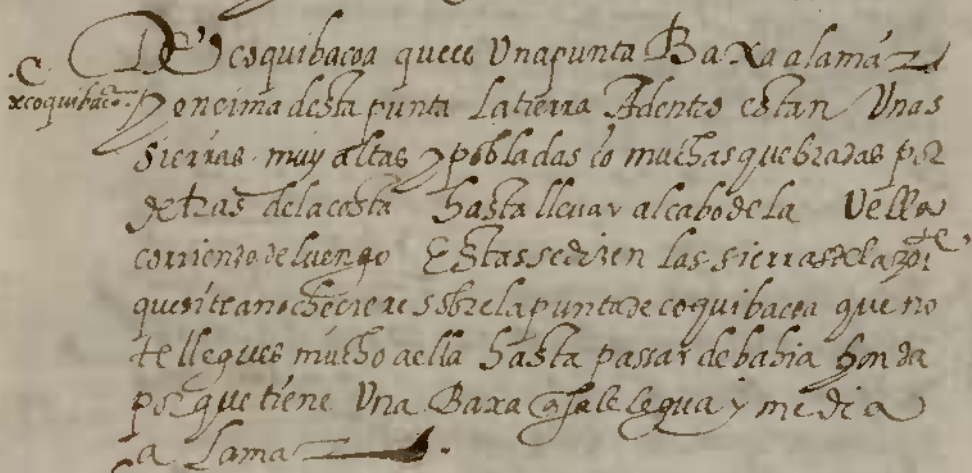 .C. De coquibacoa
xcoquibacoa. De coquibacoa ques Una punta Baxa a la már
Y encima desta punta La tierra Adentro estan Unas
sierras muy altas y pobladas co muchas quebradas por
detras de la costa hasta lleuar al cabo de la Vella
corriendo de luengo Estas se dizen las sierras de la
que si te anocheciere sobre la punta de coquibacoa que no
te llegues mucho a ella hasta passar de bahia honda
porque tiene Una Baxa q sale legua y media
a La mar.